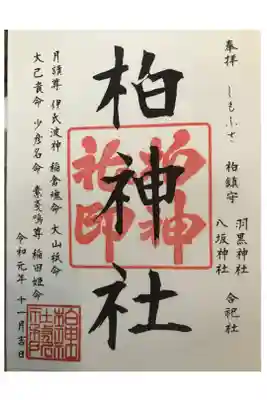 奉拝 しもふさ 柏鎮守
羽黒神社
八坂神社
合祀社
柏神社
柏神社印
月讀尊 伊氏波神 稲倉魂命 大山祇命
大己貴命 少彦名命 素戔嗚尊 稲田姫命
令和元年十一月吉日